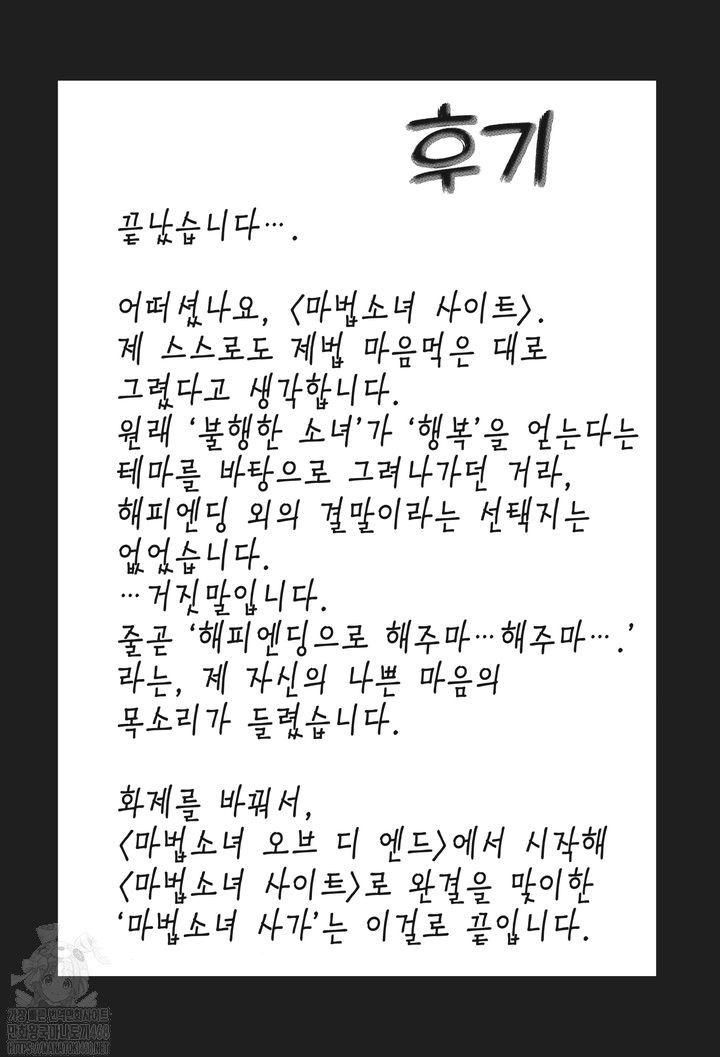 후기
끝났습니다….
어떠셨나요, 〈마법소녀 사이트〉.
제 스스로도 제법 마음먹은 대로
그렸다고 생각합니다.
원래 ‘불행한 소녀’가 ‘행복’을 얻는다는
테마를 바탕으로 그려나가던 거라,
해피엔딩 외의 결말이라는 선택지는
없었습니다.
…거짓말입니다.
줄곧 ‘해피엔딩으로 해주마…해주마….’
라는, 제 자신의 나쁜 마음의
목소리가 들렸습니다.
화제를 바꿔서,
〈마법소녀 오브 디 엔드〉에서 시작해
〈마법소녀 사이트〉로 완결을 맞이한
‘마법소녀 사가’는 이걸로 끝입니다.
가장 빠른 번역만화사이트
만화왕국마나토끼468
HTTPS://MANATOKI468.NET